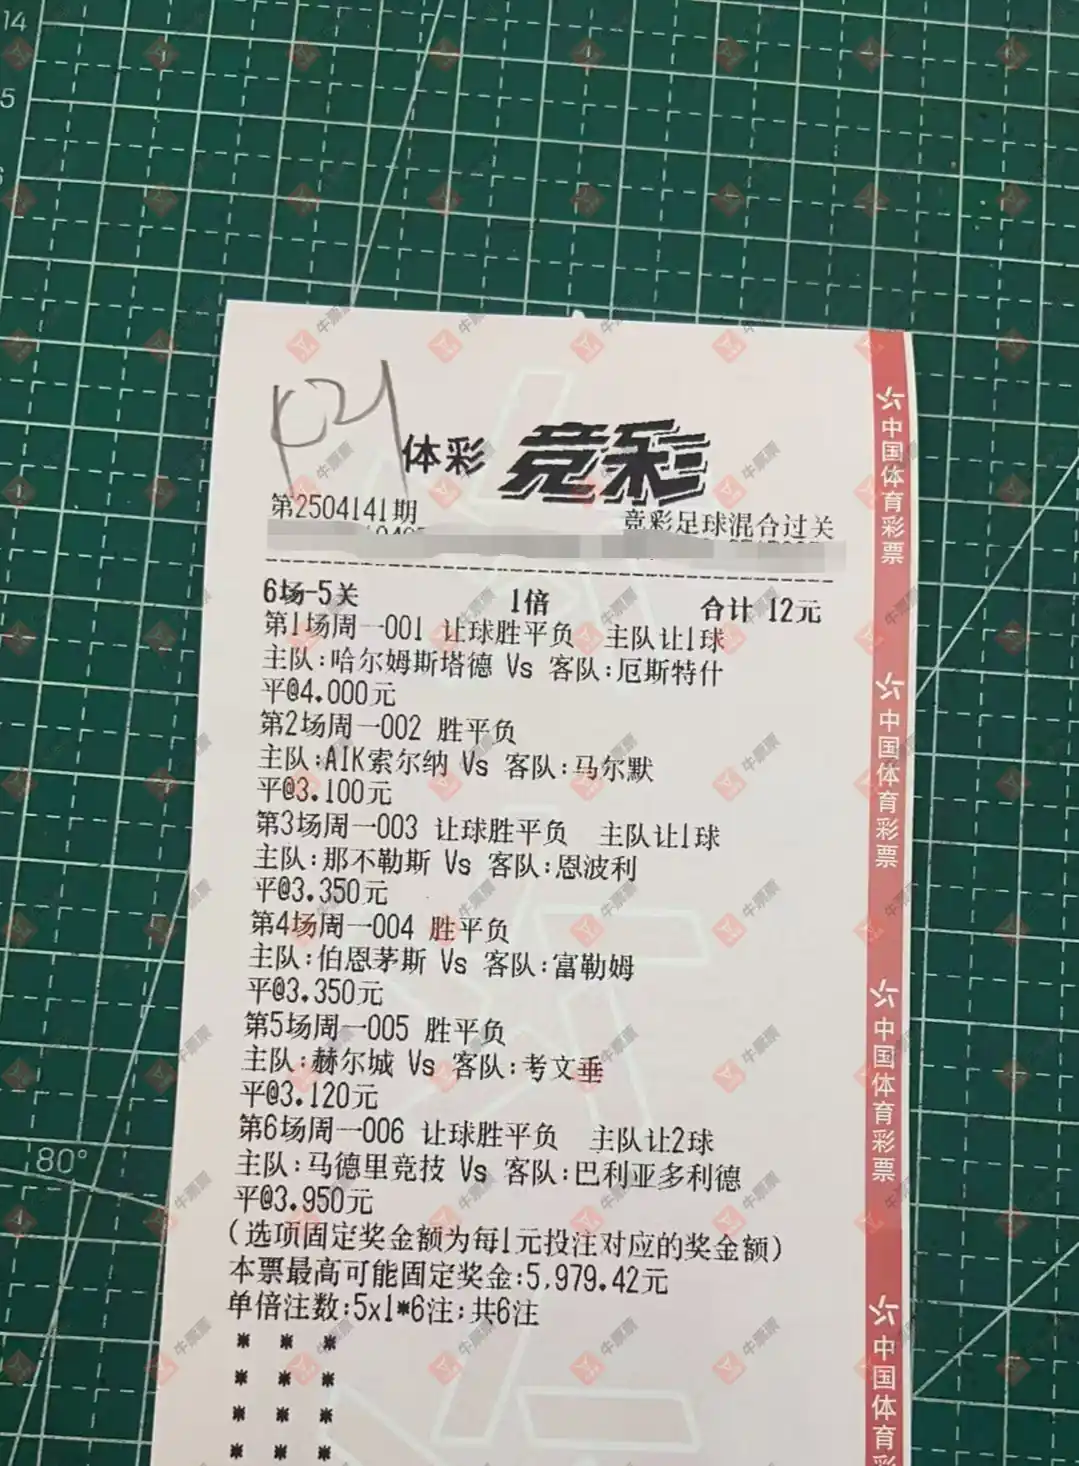 14
5
体彩 竞彩
第2504141期 竞彩足球混合过关
6场-5关 1倍 合计 12元
第1场周一001 让球胜平负 主队让1球
主队:哈尔姆斯塔德 Vs 客队:厄斯特什
平@4.000元
第2场周一002 胜平负
主队:AIK索尔纳 Vs 客队:马尔默
平@3.100元
第3场周一003 让球胜平负 主队让1球
主队:那不勒斯 Vs 客队:恩波利
平@3.350元
第4场周一004 胜平负
主队:伯恩茅斯 Vs 客队:富勒姆
平@3.350元
第5场周一005 胜平负
主队:赫尔城 Vs 客队:考文垂
平@3.120元
第6场周一006 让球胜平负 主队让2球
主队:马德里竞技 Vs 客队:巴利亚多利德
平@3.950元
(选项固定奖金额为每1元投注对应的奖金额)
本票最高可能固定奖金:5,979.42元
单倍注数:5x1*6注;共6注
* * *
* * *
* * *
* * *
中国体育彩票
中国体育彩票
中国体育彩票
中国体育彩
80°
牛票票